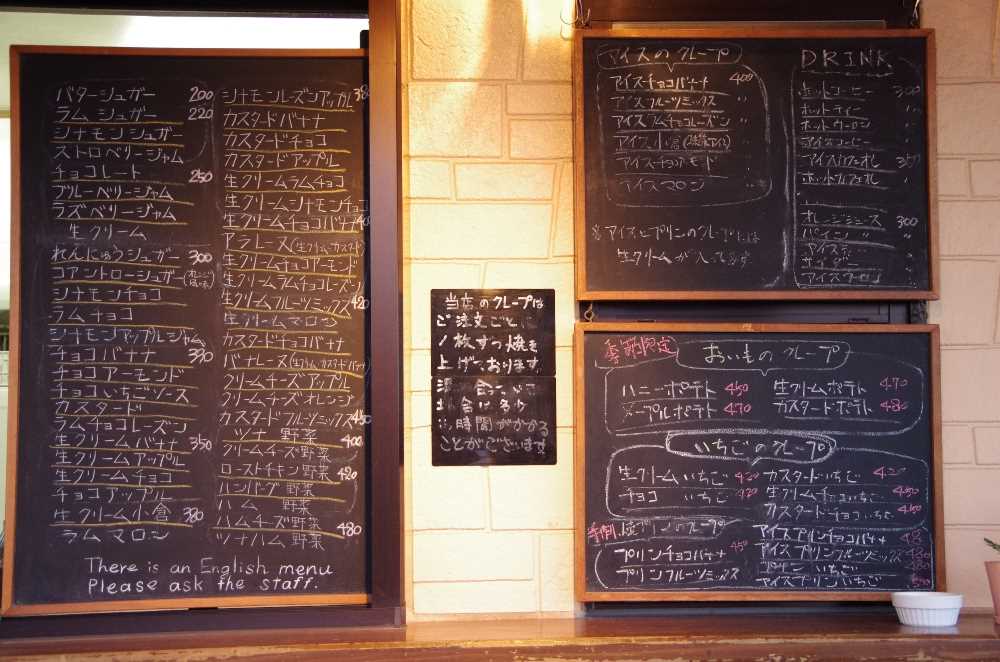 バターシュガー 200
ラム シュガー 220
シナモン シュガー
ストロベリージャム
チョコレート 250
ブルーベリージャム
ラズベリージャム
生クリーム
れんにゅうシュガー 300
コアントローシュガー(オレンジ風味)
シナモンチョコ
ラムチョコ
シナモンアップルジャム
チョコバナナ 330
チョコアーモンド
チョコいちごソース
カスタード
ラムチョコレーズン
生クリームバナナ 350
生クリームアップル
生クリームチョコ
チョコアップル
生クリーム小倉 380
ラムマロン
シナモンレーズンアップル 380
カスタードバナナ
カスタードチョコ
カスタードアップル
生クリームラムチョコ
生クリームシナモンチョコ
生クリームチョコバナナ 400
アラレーズ(生クリームカスタード)
生クリームチョコアーモンド
生クリームラムチョコレーズン
生クリームフルーツミックス 420
生クリームマロン
カスタードチョコバナナ
バナレーズ(生クリームカスタードバナナ)
クリームチーズアップル
クリームチーズオレンジ
カスタードフルーツミックス 450
ツナ 野菜 400
クリームチーズ野菜
ローストチキン野菜 420
ハンバーグ 野菜
ハム 野菜
ハムチーズ野菜 480
ツナハム 野菜
There is an English menu
Please ask the staff.
当店のクレープは
ご注文ごとに
1枚ずつ焼き
上げております。
混み合っている
場合は多少
お時間がかかる
ことがございます。
アイスのクレープ
アイスチョコバナナ 400
アイスフルーツミックス 〃
アイスラムチョコレーズン 〃
アイス小倉
アイスチョコアーモンド
アイスマロン
※アイスとプリンのクレープには
生クリームが入ってます
DRINK
ホットコーヒー 300
ホットティー 〃
ホットウーロン 〃
アイスコーヒー 〃
アイスカフェオレ 350
ホットカフェオレ 〃
オレンジジュース 300
パイン 〃
アイスティー 〃
サイダー 〃
アイスウーロン 〃
季節限定 おいものクレープ
ハニーポテト 450
メープルポテト 470
生クリームポテト 470
カスタードポテト 480
いちごのクレープ
生クリームいちご 420
チョコ いちご 420
カスタードいちご 420
生クリームチョコいちご 450
カスタードチョコいちご 450
焼プリンのクレープ
プリンチョコバナナ 450
プリンフルーツミックス
アイスプリンチョコバナナ 48
アイスプリンフルーツミックス 480
プリン いちご 480
アイスプリンいちご